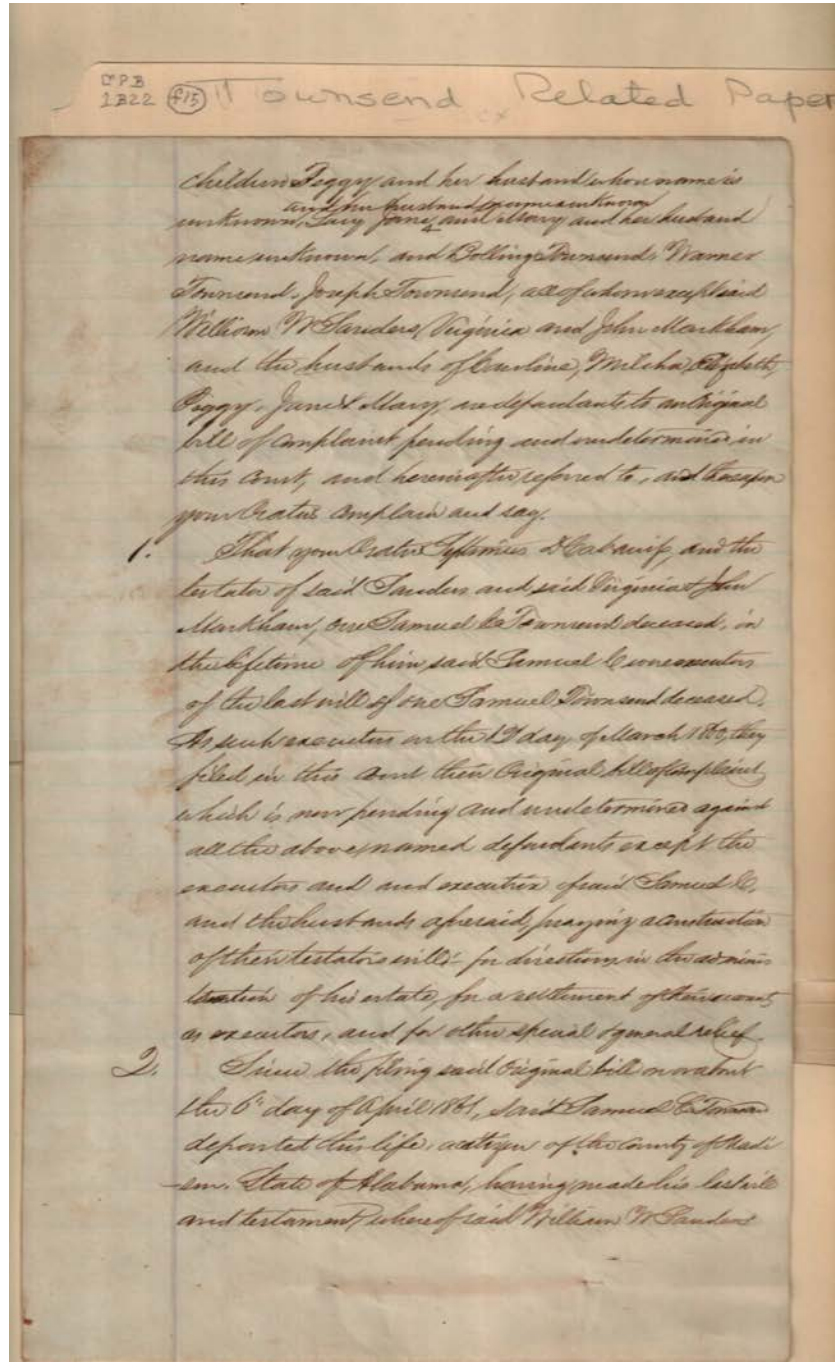 CPB
2B22 f15 Townsend Related Paper
children Peggy and her husband whose name is
and her husband name unknown
unknown, Lucy Jane, and Mary and her husband
name unknown, and Bolling Townsend, Warner
Townsend, Joseph Townsend, all of whom except said
William W Sanders, Virginia and John Markham,
and the husbands of Caroline, Milcha, Elizabeth,
Peggy, Jane & Mary, are defendants to an Original
bill of complaint pending and undetermined in
this Court, and hereinafter referred to, and thereupon
your Orator complain and say.
1. That your Orator Septimus D Cabaniss, and the
testator of said Sanders and said Virginia & John
Markham, one Samuel C Townsend deceased, in
the lifetime of him, said Samuel C were executors
of the last will of one Samuel Townsend deceased.
As such executors on the day of March 1860, they
filed in this Court their Original bill of complaint,
which is now pending and undetermined against
all the above named defendants except the
executors and and executrix of said Samuel C,
and the husbands aforesaid, praying a construction
of their testators will: for directions in the adminis
tration of his estate, for a settlement of their accounts
as executors, and for other special & general relief.
2. Since the filing said Original bill on or about
the 6th day of April 1861, said Samuel C Townsen
departed this life, a citizen of the County of Madi
-son. State of Alabama, having made his last will
and testament, whereof said William W Sanders